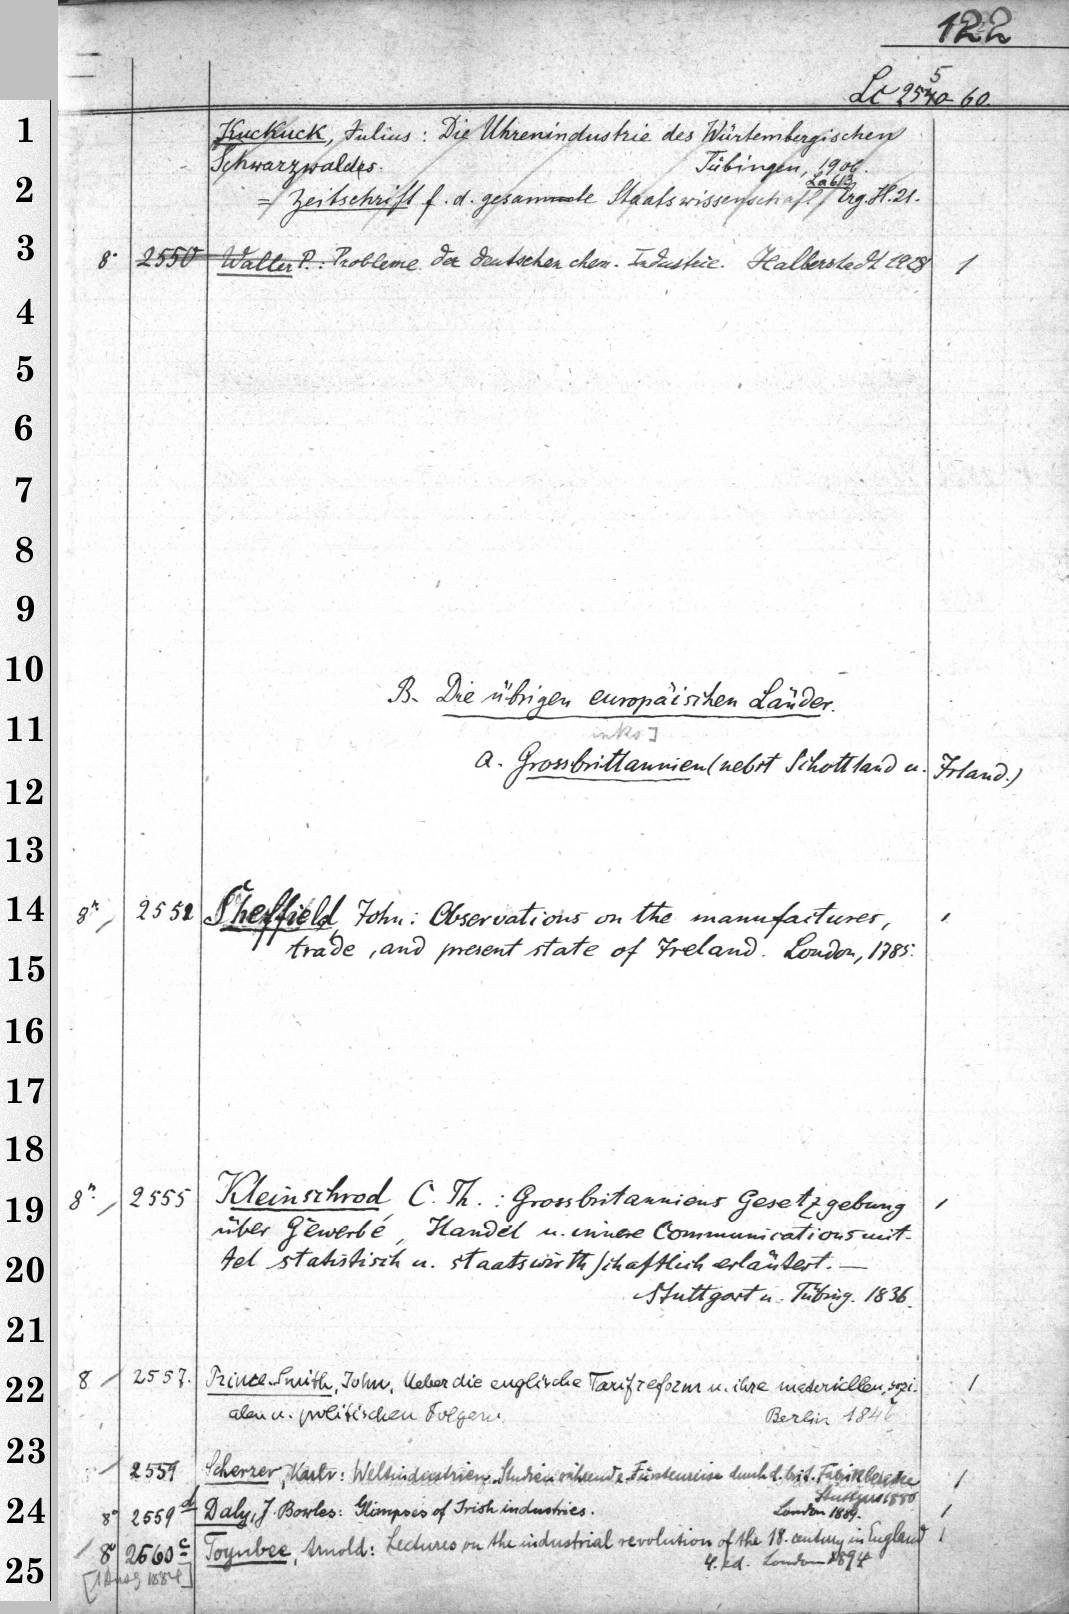 122
Lc 2540-60
5
Kuckuck, Julius: Die Uhrenindustrie des Würtembergischen
Schwarzwaldes. Tübingen, 1906.
= Zeitschrift f. d. gesammte Staatswissenschaft, La 613 Erg. H. 21.
8° 2550 Walter P.: Probleme der deutschen chem. Industrie. Halberstadt 1928 1
B. Die übrigen europäischen Länder.
a. Grossbrittannien (nebst Schottland u. Irland.)
8° 2552 Sheffield, John: Observations on the manufactures,
trade, and present state of Ireland. London, 1785.
8° 2555 Kleinschrod, C. Th.: Grossbritanniens Gesetzgebung
über Gewerbe, Handel u. innere Communicationsmit-
tel statistisch u. staatswirthschaftlich erläutert. —
Stuttgart u. Tübing. 1836.
8 2557. Prince-Smith, John, Ueber die englische Tarifreform u. ihre materiellen, sozi-
alen u. politischen Folgen. Berlin 1846
2559 Scherzer, Karl v: Weltindustrien. Studien während e. Fürstenreise durch d. brit. Fabrikbezirke
Stuttgart 1880
8° 2559 d Daly, J. Bowles: Glimpses of Irish industries. London 1889.
8° 2560 c Toynbee, Arnold: Lectures on the industrial revolution of the 18. century in England
4. ed. London 1894
[1 Ausg 1884]